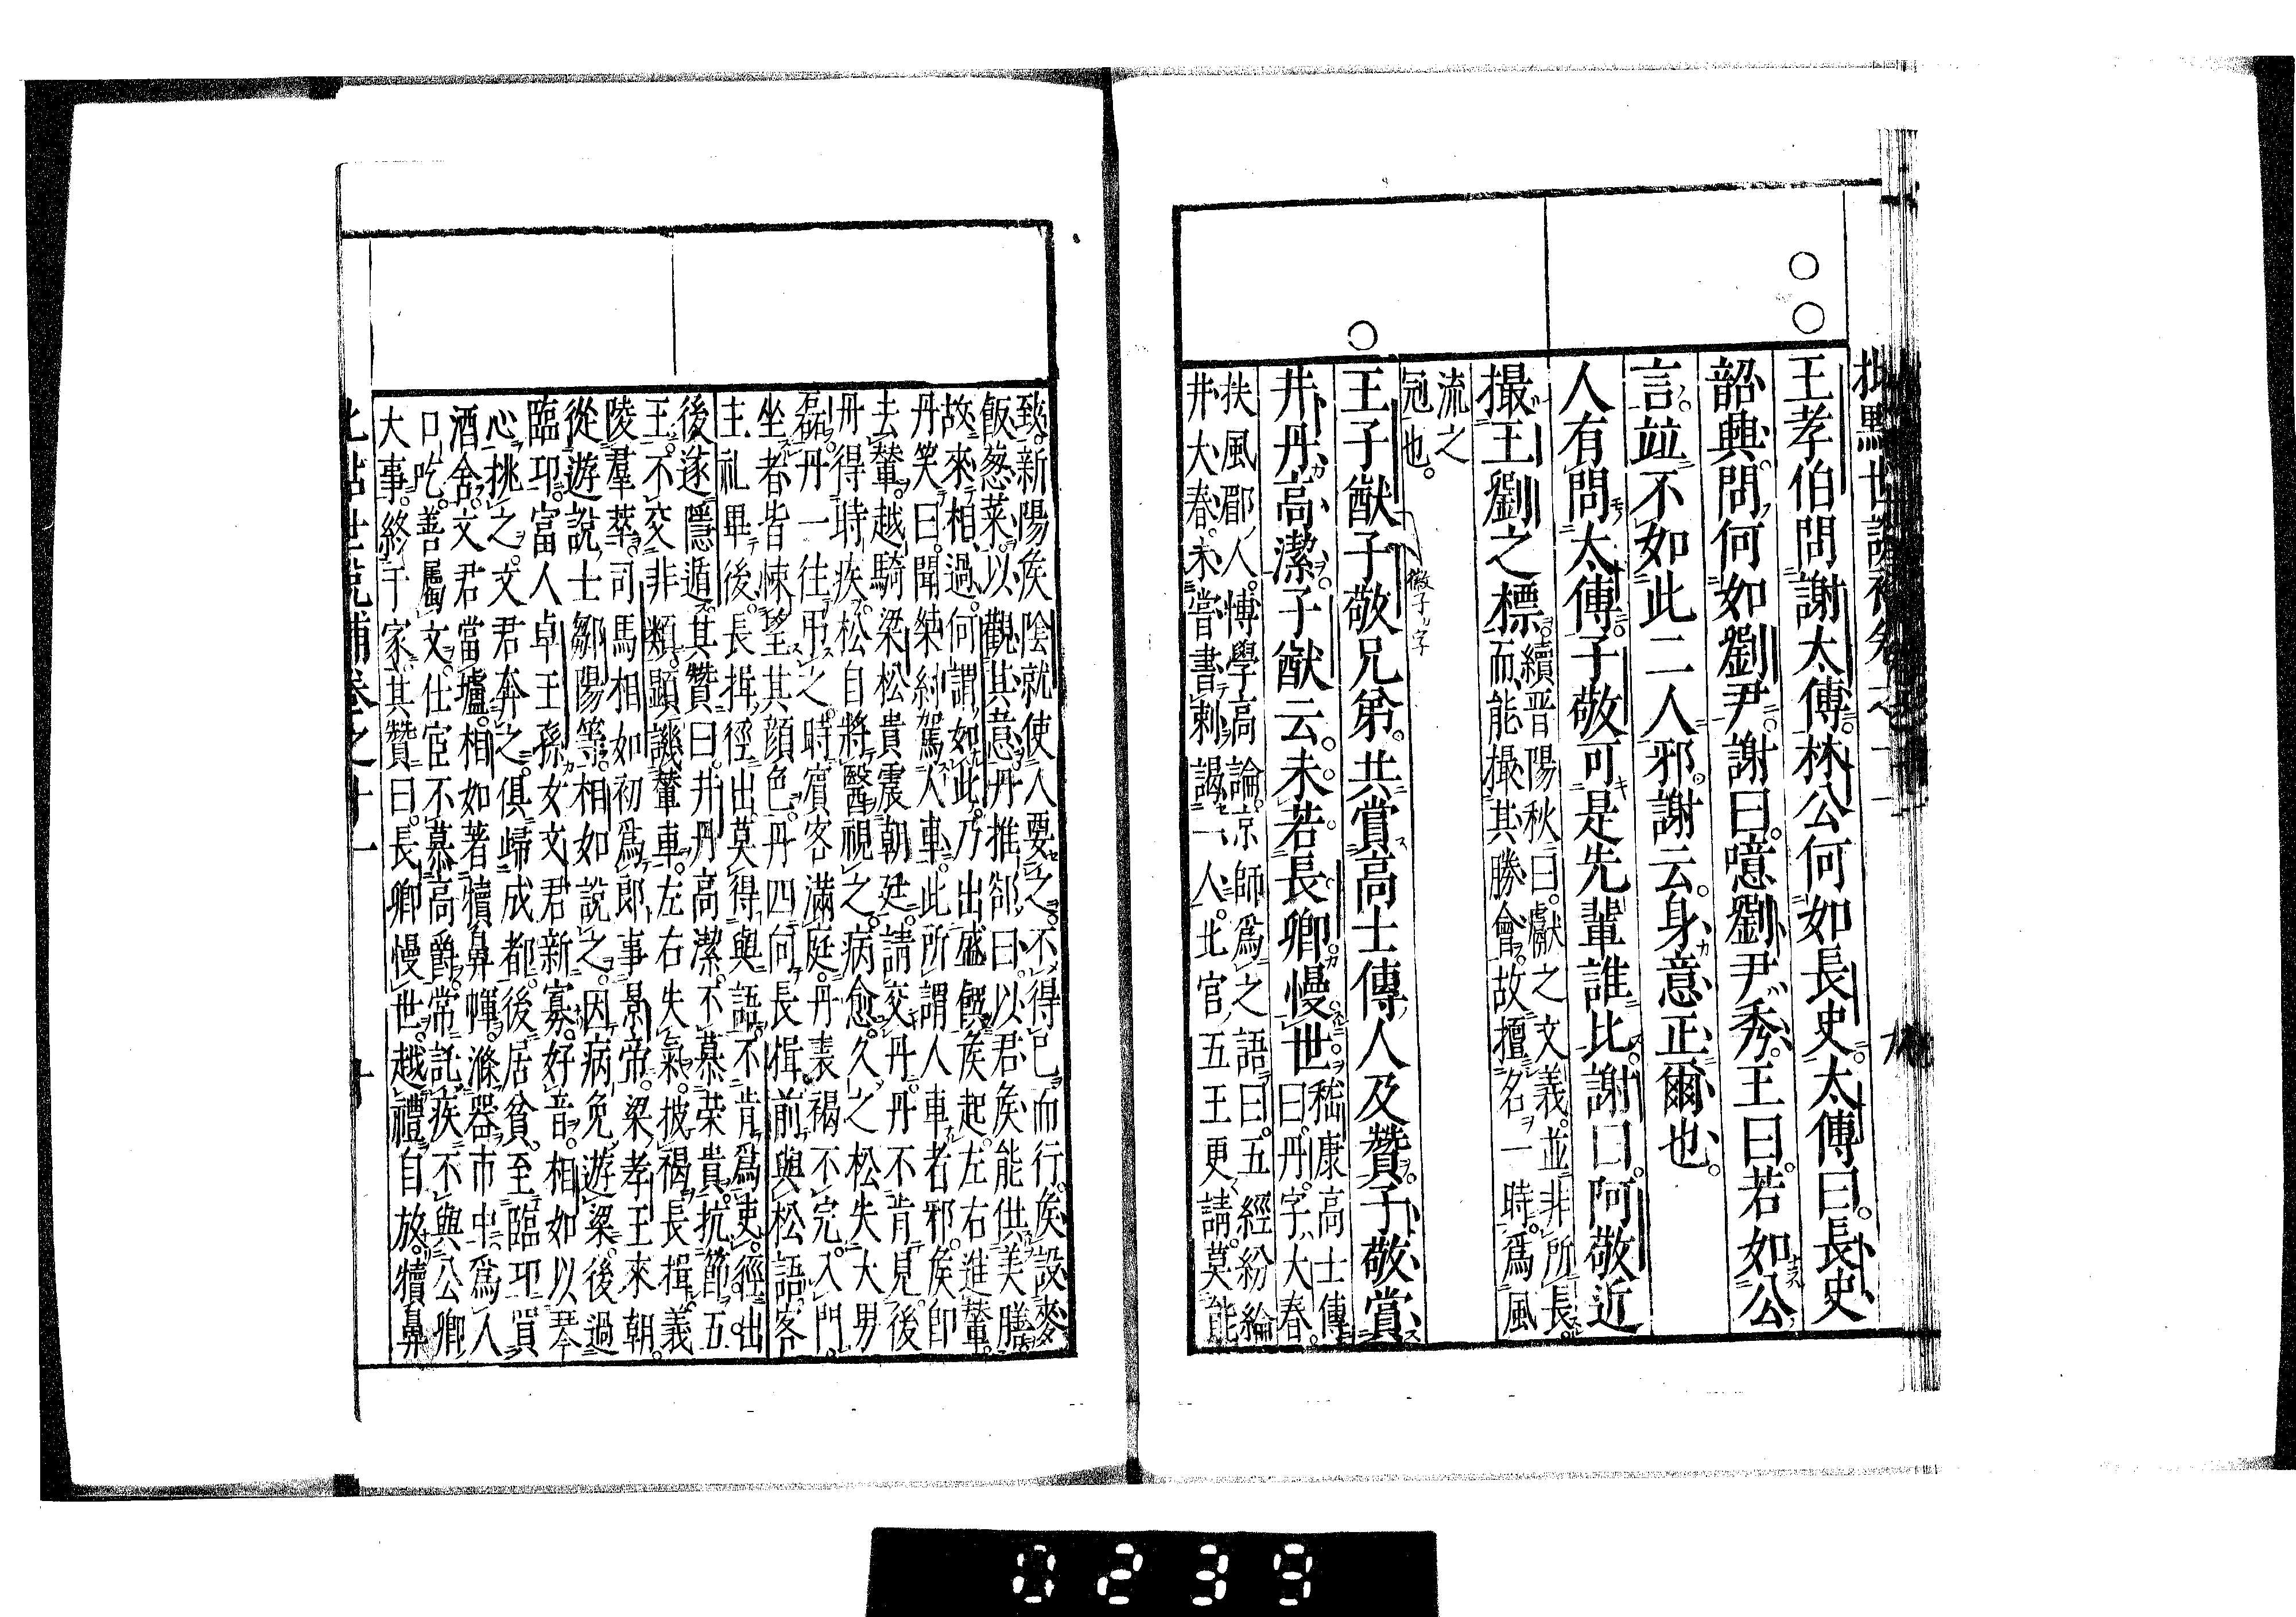 批點世說補卷之十一 九
王孝伯問謝太傅。林公何如長史。太傅曰。長史
韶興。問何如劉尹。謝曰。噫劉尹秀。王曰。若如公
言。竝不如此二人邪。謝云。身意正爾也。
人有問太傅。子敬可是先輩誰比。謝曰。阿敬近
撮王劉之標。
續晉陽秋曰。獻之文義。並非所長。
而能撮其勝會。故擅名一時。爲風
流之
冠也。
王子猷子敬兄弟。共賞高士傳人及贊。子敬賞
井丹高潔。子猷云。未若長卿慢世。
嵇康高士傳
曰。丹。字大春。
扶風郿人。博學高論。京師爲之語曰。五經紛綸
井大春。未嘗書刺謁一人。北宮五王更請。莫能
徽子ノ字
致。新陽侯陰就使人要之。不得已而行。侯設麥
飯葱菜。以觀其意。丹推郤曰。以君侯能供美膳。
故來相過。何謂如此。乃出盛饌。侯起。左右進輦。
丹笑曰。聞桀紂駕人車。此所謂人車者邪。侯卽
去輦。越騎梁松貴震朝廷。請交丹。丹不肯見。後
丹得時疾。松自將醫視之。病愈。久之松失大男
磊。丹一往弔之。時賓客滿庭。丹裘褐不完。入門。
坐者皆悚望其顏色。丹四向長揖前與松語。客
主礼畢後。長揖徑出。莫得與語。不肯爲吏。徑出
後遂隱遁。其贊曰。井丹高潔。不慕荣貴。抗節五
王。不交非類。顯譏輦車。左右失氣。披褐長揖。義
陵羣萃。司馬相如初爲郎。事景帝。梁孝王來朝。
從遊說士鄒陽等。相如說之。因病免遊梁。後過
臨邛。富人卓王孫女文君新寡。好音。相如以琴
心挑之。文君奔之。俱歸成都。後居貧。至臨邛買
酒舍。文君當壚。相如著犢鼻幝。滌器市中。爲人
口吃。善屬文。仕宦不慕高爵。常託疾不與公卿
大事。終于家。其贊曰。長卿慢世。越禮自放。犢鼻
批點世說補卷之十一 十
0239